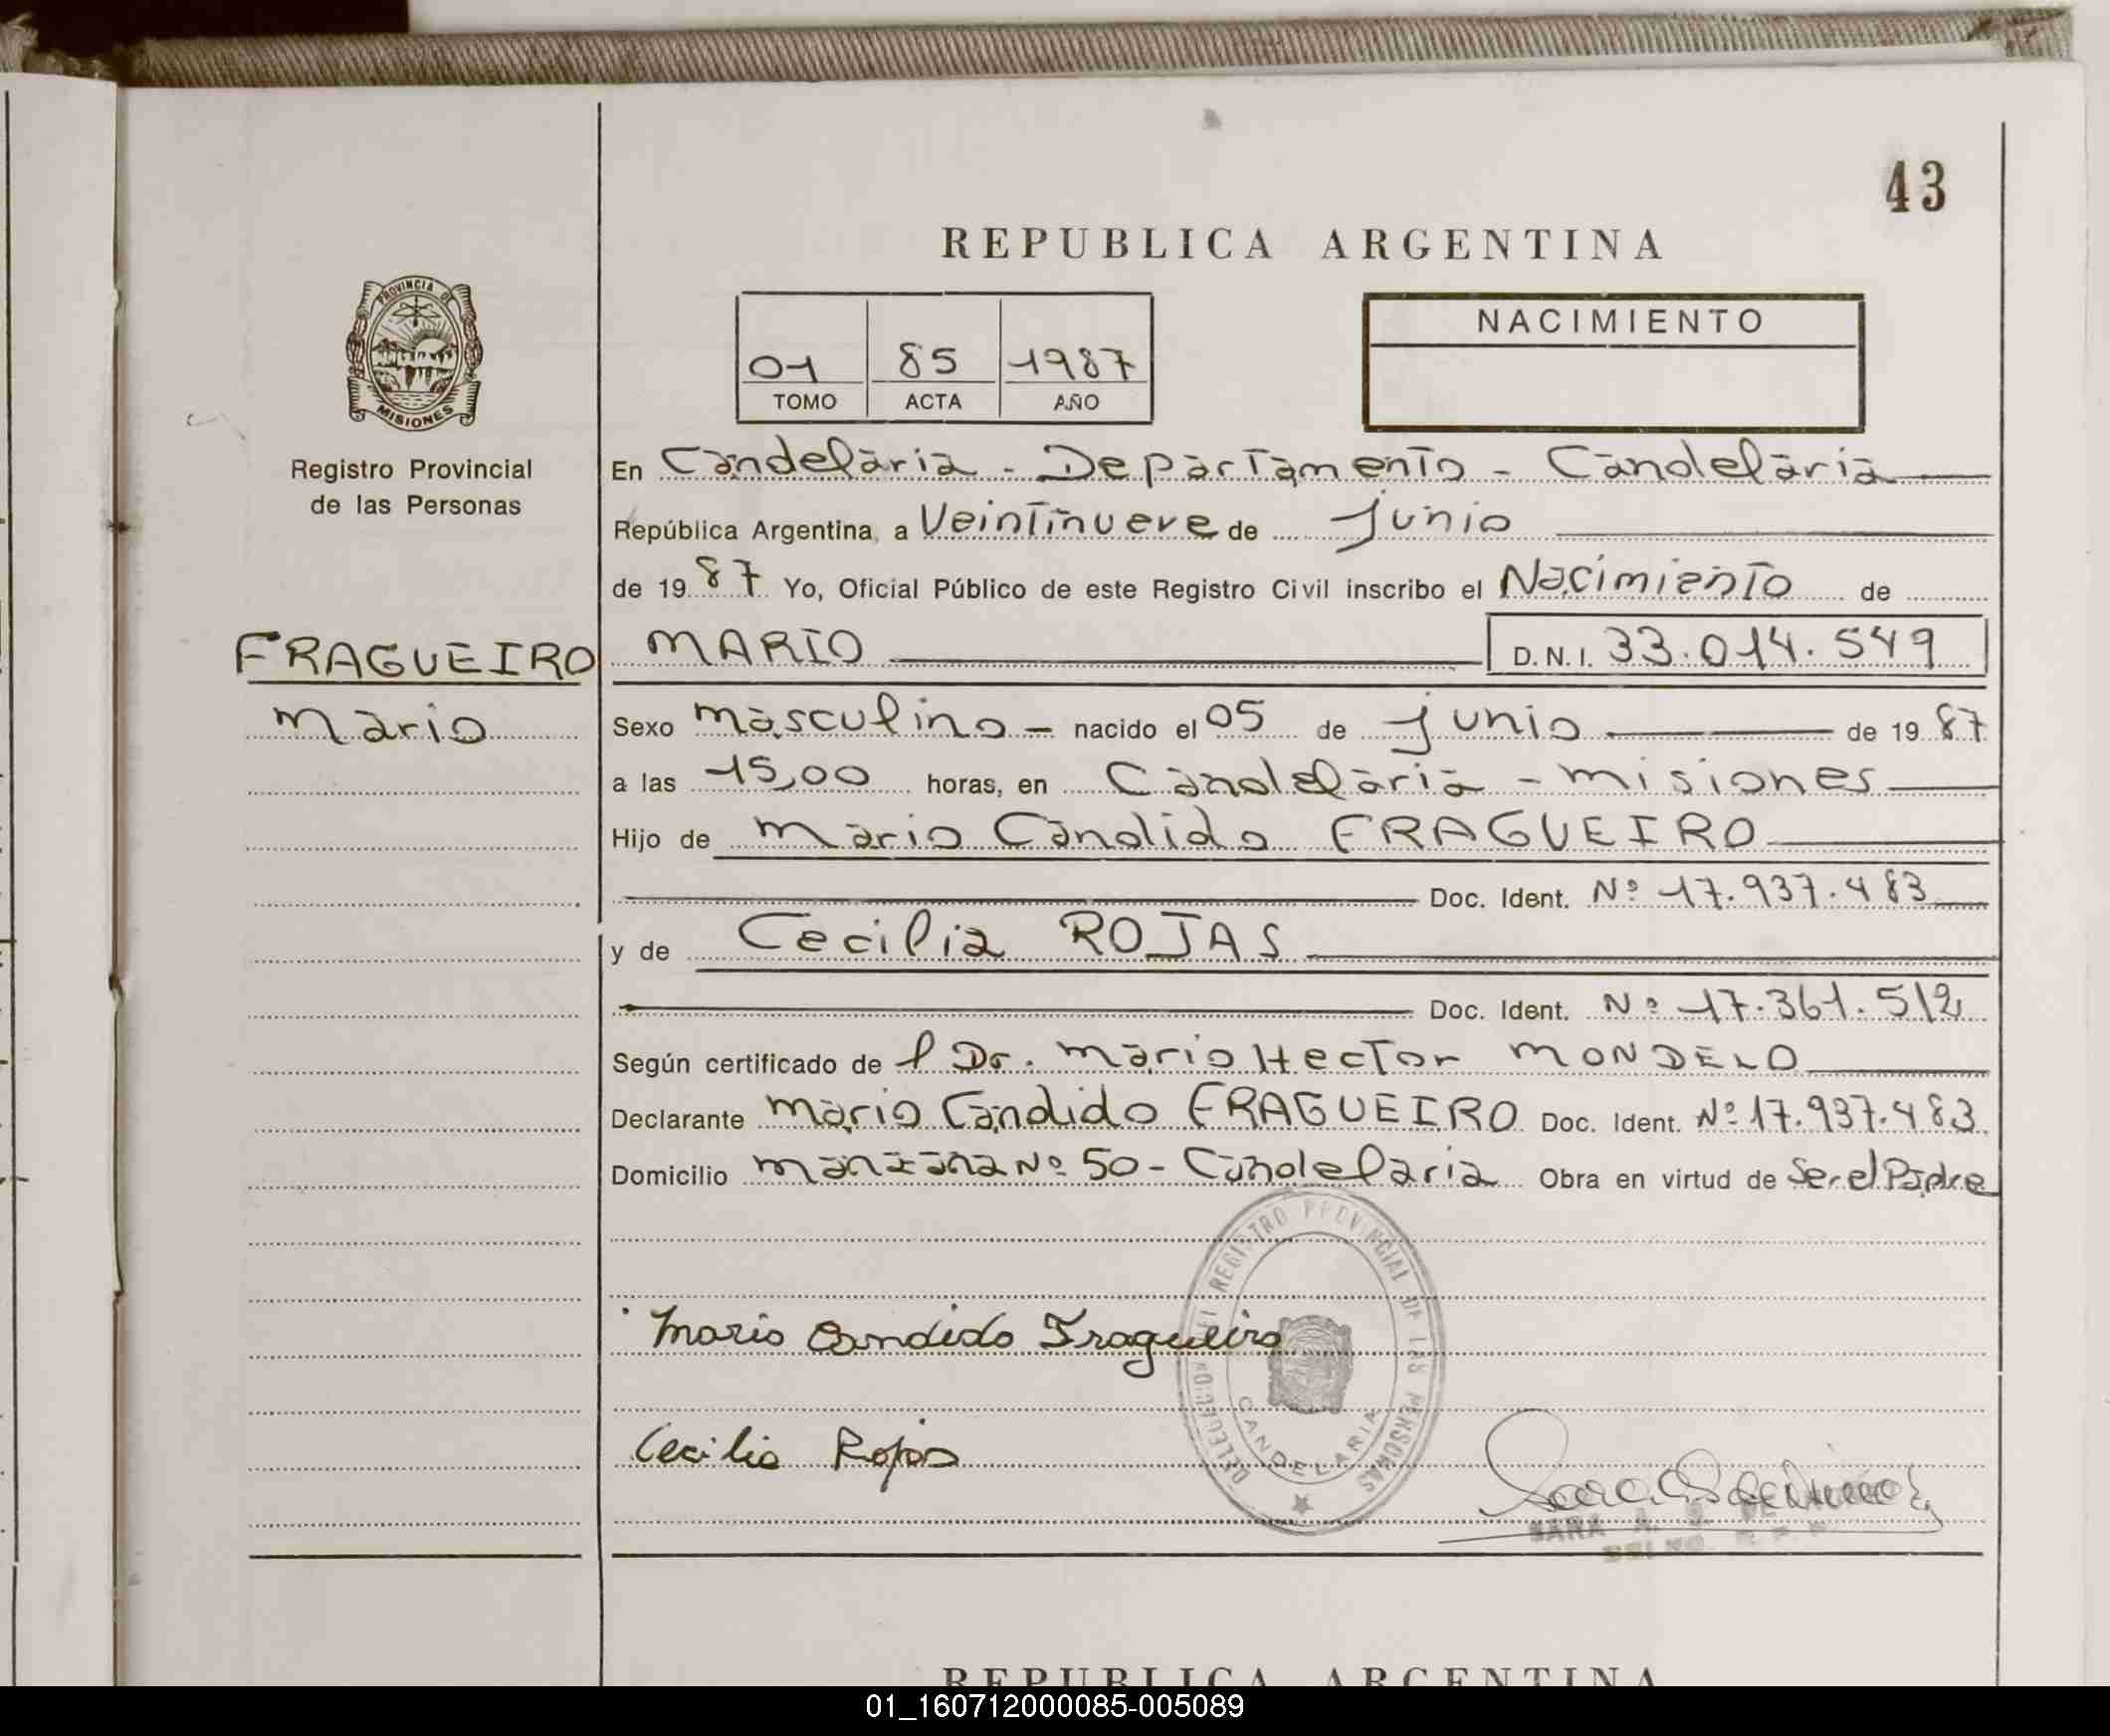 43
REPUBLICA ARGENTINA
PROVINCIA DE
MISIONES
Registro Provincial
de las Personas
01 85 1987
TOMO ACTA AÑO
NACIMIENTO
En Candelaria - Departamento - Candelaria
República Argentina, a Veintinueve de junio
de 1987 Yo, Oficial Público de este Registro Civil inscribo el Nacimiento de
FRAGUEIRO MARIO D.N.I. 33.014.549
Mario
Sexo masculino - nacido el 05 de junio de 1987
a las 15,00 horas, en Candelaria - misiones
Hijo de Mario Candido FRAGUEIRO
Doc. Ident. Nº 17.937.483
y de Cecilia ROJAS
Doc. Ident. Nº 17.361.512
Según certificado de l Dr. Mario Hector MONDELO
Declarante Mario Candido FRAGUEIRO Doc. Ident. Nº 17.937.483
Domicilio manzana Nº 50 - Candelaria Obra en virtud de Ser el Padre
REGISTRO PROVINCIAL DE LAS PERSONAS
CANDELARIA
Mario Candido Fragueiro
Cecilia Rojas
SARA
REPUBLICA ARGENTINA
01_160712000085-005089